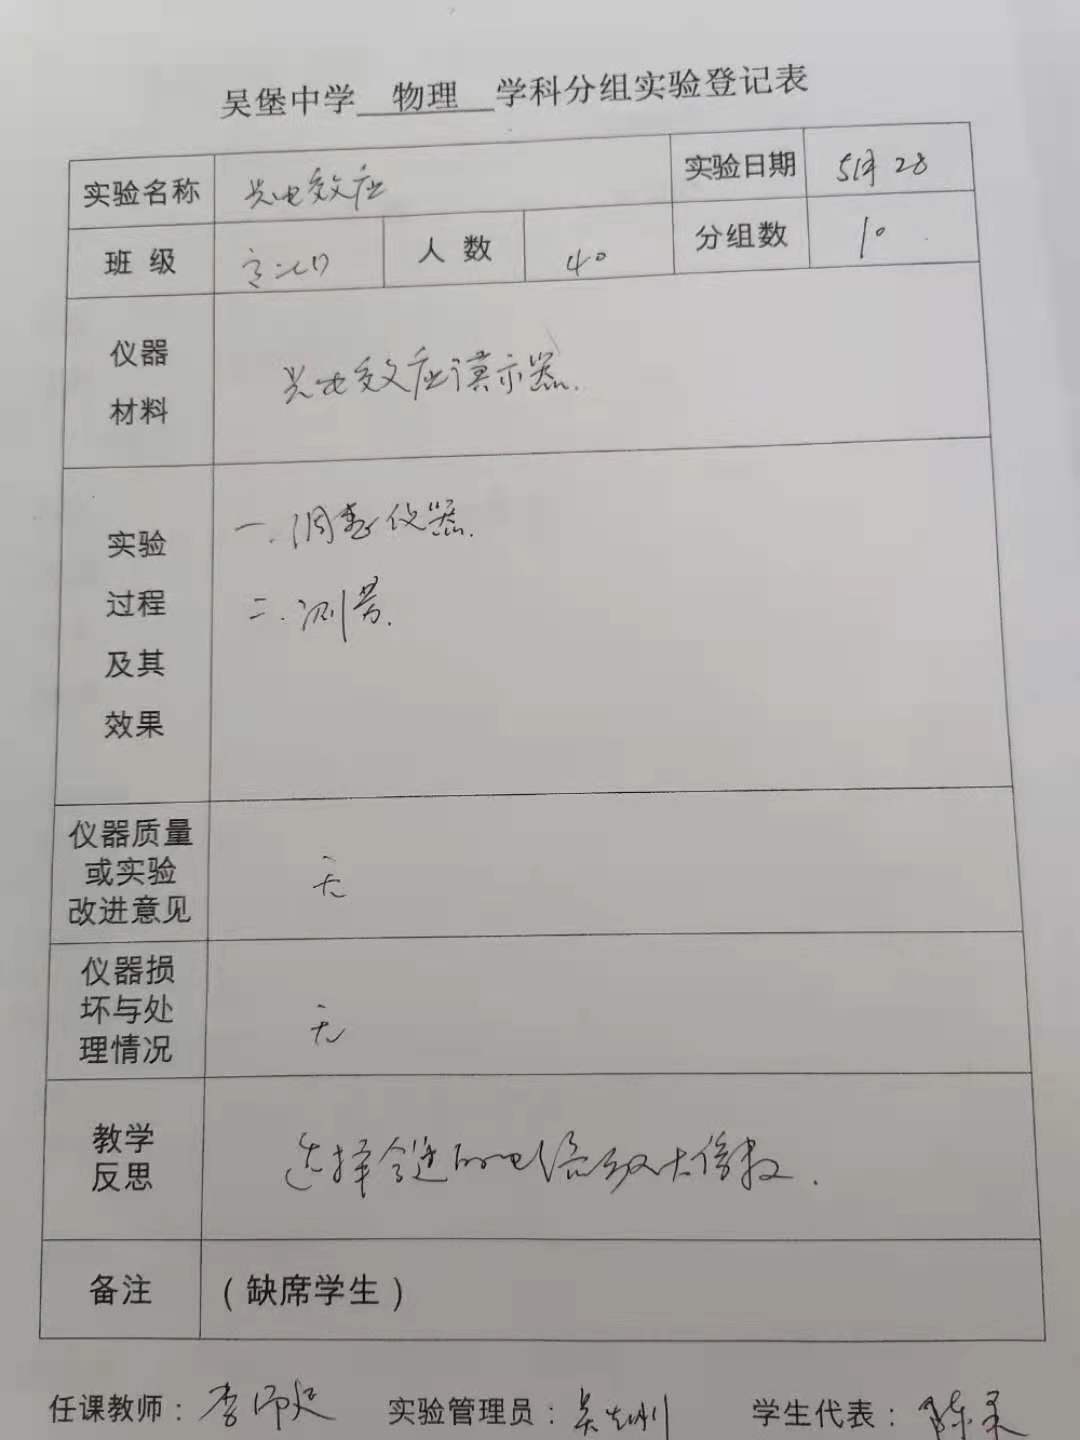 吴堡中学 物理 学科分组实验登记表
实验名称 光电效应 实验日期 5月28
班级 高二(7) 人数 40 分组数 10
仪器材料 光电效应演示器.
实验过程及其效果
一.调整仪器.
二.测量.
仪器质量或实验改进意见 无
仪器损坏与处理情况 无
教学反思 选择合适的电流放大倍数.
备注 (缺席学生)
任课教师: 李 实验管理员: 吴 学生代表: 陈